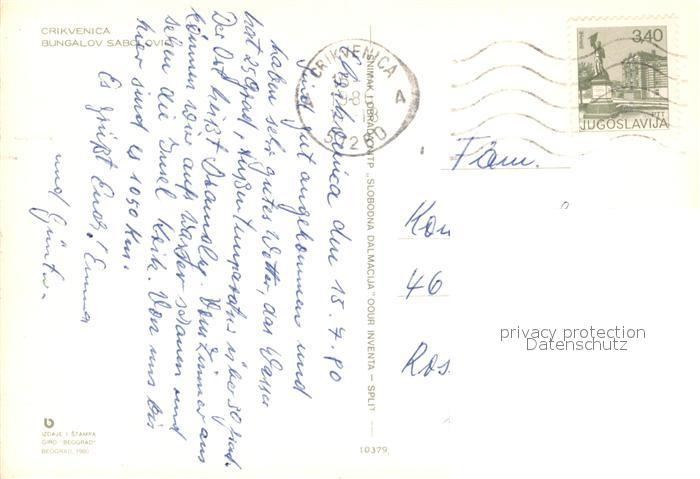 CRIKVENICA
BUNGALOV SABOLOVIĆ
Crikvenica den 15.7.80
Sind gut angekommen und
haben sehr gutes Wetter, das Wasser
hat 25 Grad, Außentemperatur über 30 Grad.
Der Ort heißt Dramalj. Vom Zimmer aus
können wir aufs Wasser schauen und
sehen die Insel Krk. Von uns bis
hier sind es 1050 km.
Es grüßt Euch! Emma
und Günter.
SNIMAK I OBRADA ONTP „SLOBODNA DALMACIJA" OOUR INVENTA – SPLIT
10379
IZDAJE I ŠTAMPA
GIRO "BEOGRAD"
BEOGRAD, 1980
CRIKVENICA
A
3,40
JUGOSLAVIJA
Fam.
46
privacy protection
Datenschutz